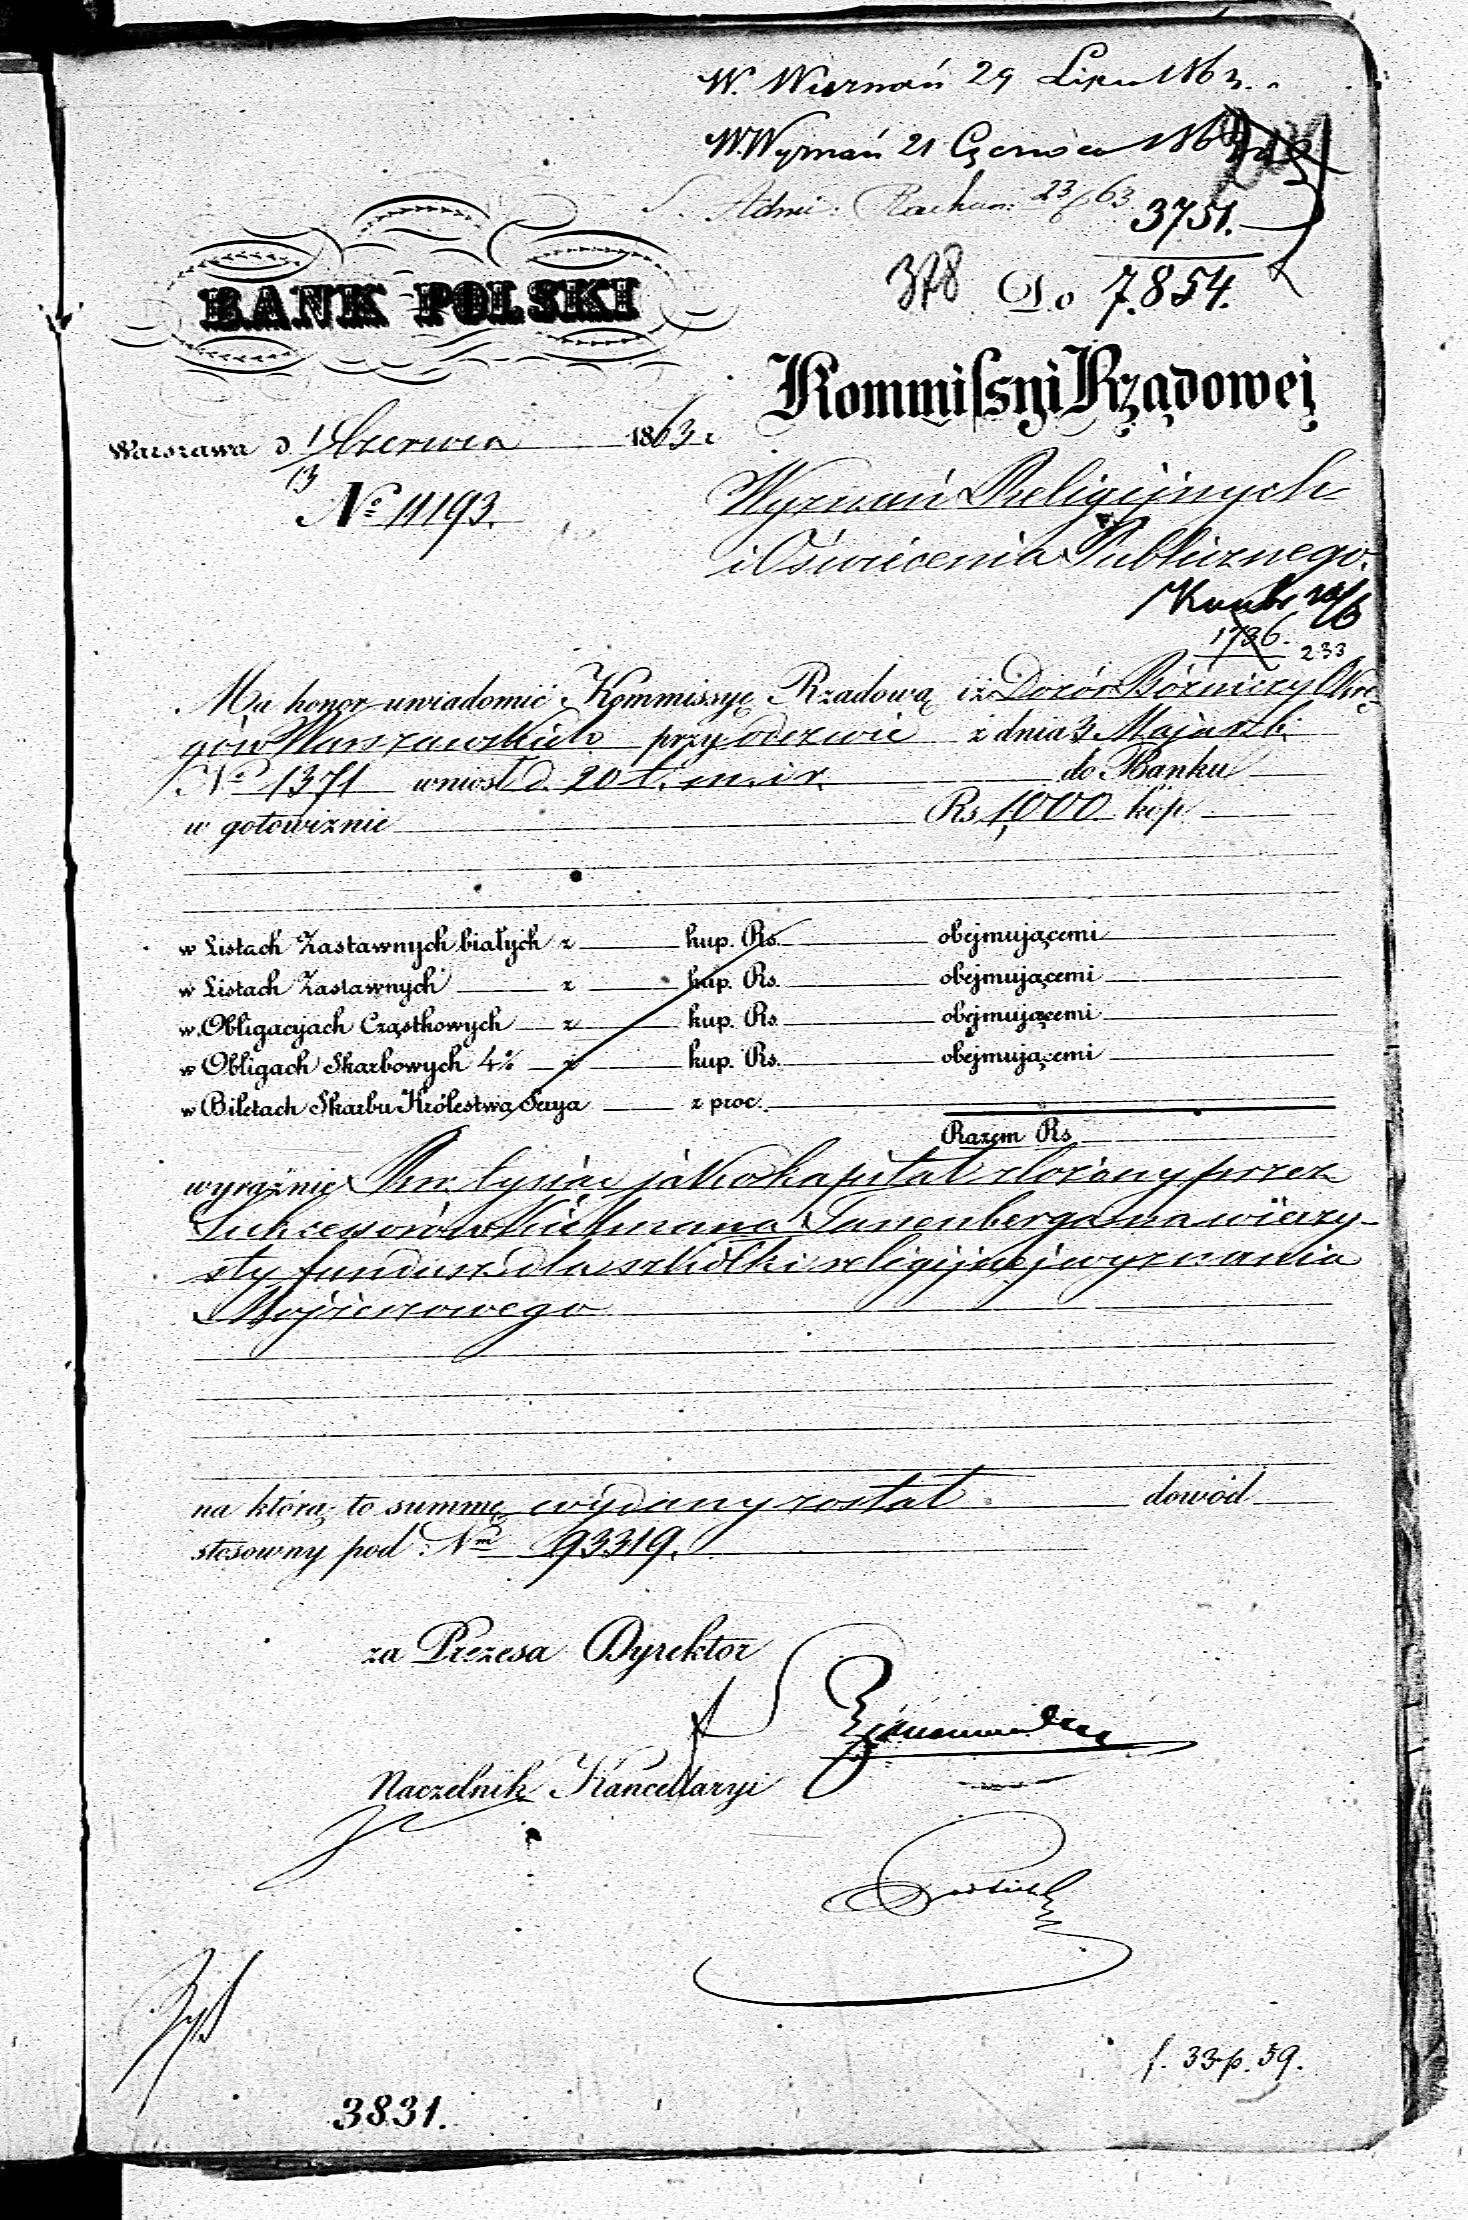 W. Wyznań 29 Lipca 1863.
W. Wyznań 21 Czerwca 186
S. Admi: Rachun: 23/6 63.
3751.
378 Do 7.854.
BANK POLSKI
Kommissyi Rządowej
Warszawa d. 1/13 Czerwca 1863 r.
Nº 11193.
Wyznań Religijnych
i Oświecenia Publicznego.
1736.
233
Ma honor uwiadomić Kommissyę Rządową iż Dozór Bóżniczy Okrę
gów Warszawskich przy odezwie z dnia 3 Maja r. b.
Nº 1371 wniosł d. 20 t. m. i r. do Banku
w gotowiznie Rs 1,000 kop
w Listach Zastawnych białych z kup. Rs. obejmującemi
w Listach Zastawnych z kup. Rs. obejmującemi
w Obligacyach Cząstkowych z kup. Rs. obejmującemi
w Obligach Skarbowych 4% z kup. Rs. obejmującemi
w Biletach Skarbu Królestwa Serya z proc.
Razem Rs.
wyraźnie Rsr. tysiąc jako kapitał złożony przez
Sukcessorów Tanenberga na wieczy-
sty fundusz dla szkółki religijnej wyznania
Mojżeszowego
na którą to summę wydany został dowód
stosowny pod Nm 93319.
za Prezesa Dyrektor
Naczelnik Kancellaryi
f. 33 p. 59.
3831.